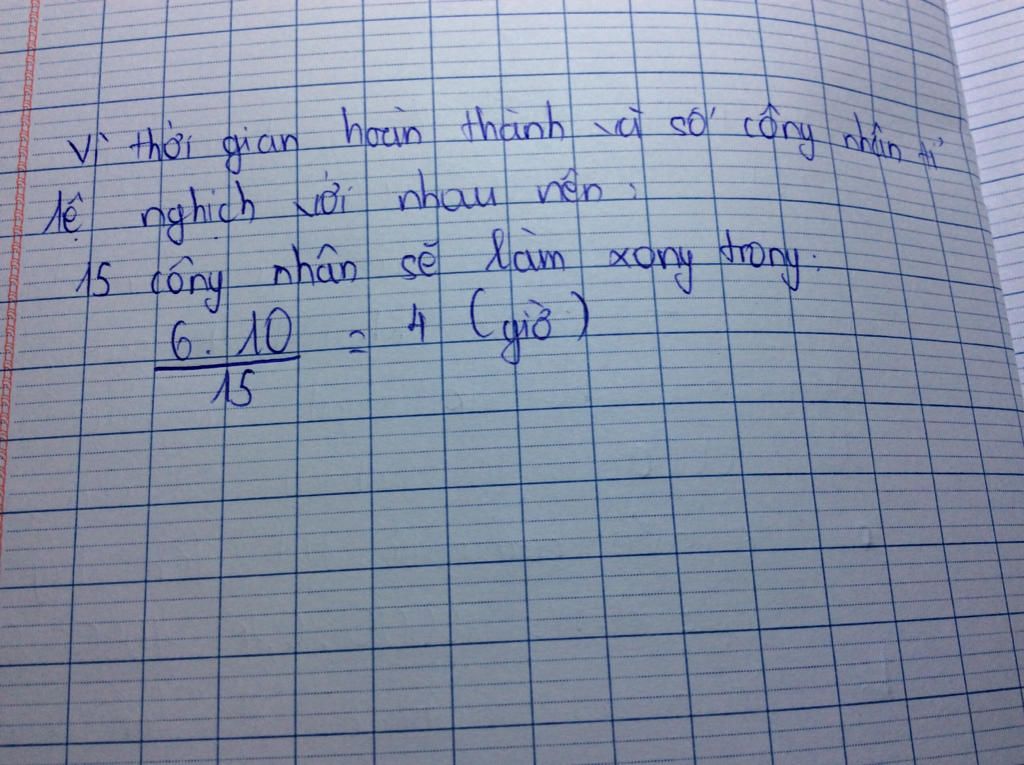 Vì thời gian hoàn thành và số công nhân tỉ
lệ nghịch với nhau nên:
15 công nhân sẽ làm xong trong:
6.10 / 15 = 4 (giờ)